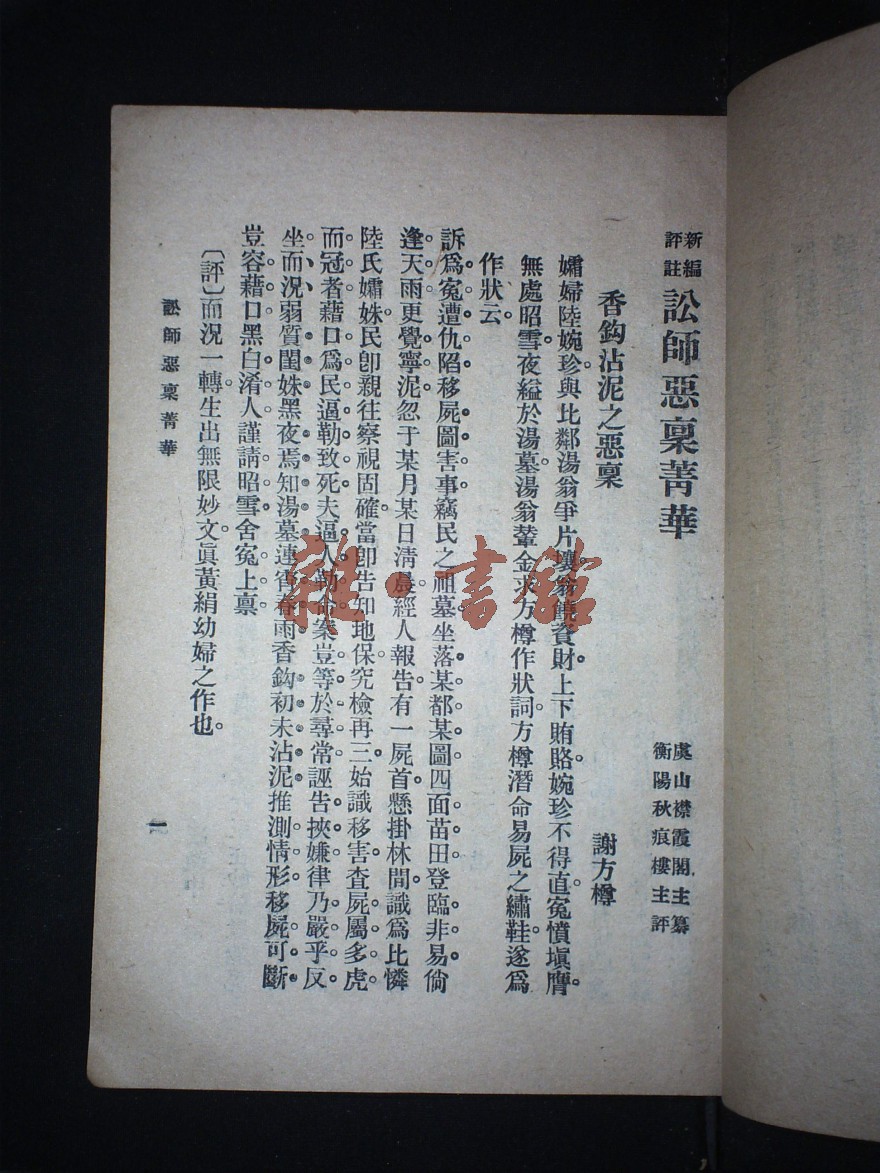 新編評註訟師惡稟菁華
虞山襟霞閣主纂
衡陽秋痕樓主評
香鈎沾泥之惡稟 謝方樽
孀婦陸婉珍。與比鄰湯翁爭片壤。翁饒資財。上下賄賂。婉珍不得直。寃憤塡膺。
無處昭雪。夜縊於湯墓。湯翁輦金求方樽作狀詞。方樽潛命易屍之繡鞋。遂爲
作狀云。
訴爲寃遭仇陷。移屍圖害事。竊民之祖墓。坐落某都某圖。四面苗田。登臨非易。倘
逢天雨。更覺寧泥。忽于某月某日淸晨。經人報吿。有一屍首。懸掛林間。識爲比憐
陸氏孀姝。民卽親往察視固確。當卽吿知地保。究檢再三。始識移害。査屍屬多虎
而冠者。藉口爲民逼勒致死。夫逼人勒命案。豈等於尋常。誣吿挾嫌。律乃嚴乎反
坐。而況弱質閨姝。黑夜焉知湯墓。連宵春雨。香鈎初未沾泥。推測情形。移屍可斷。
豈容藉口。黑白淆人。謹請昭雪。舍寃上禀。
〔評〕而況一轉。生出無限妙文。眞黃絹幼婦之作也。
訟師惡稟菁華
一
雜·書館